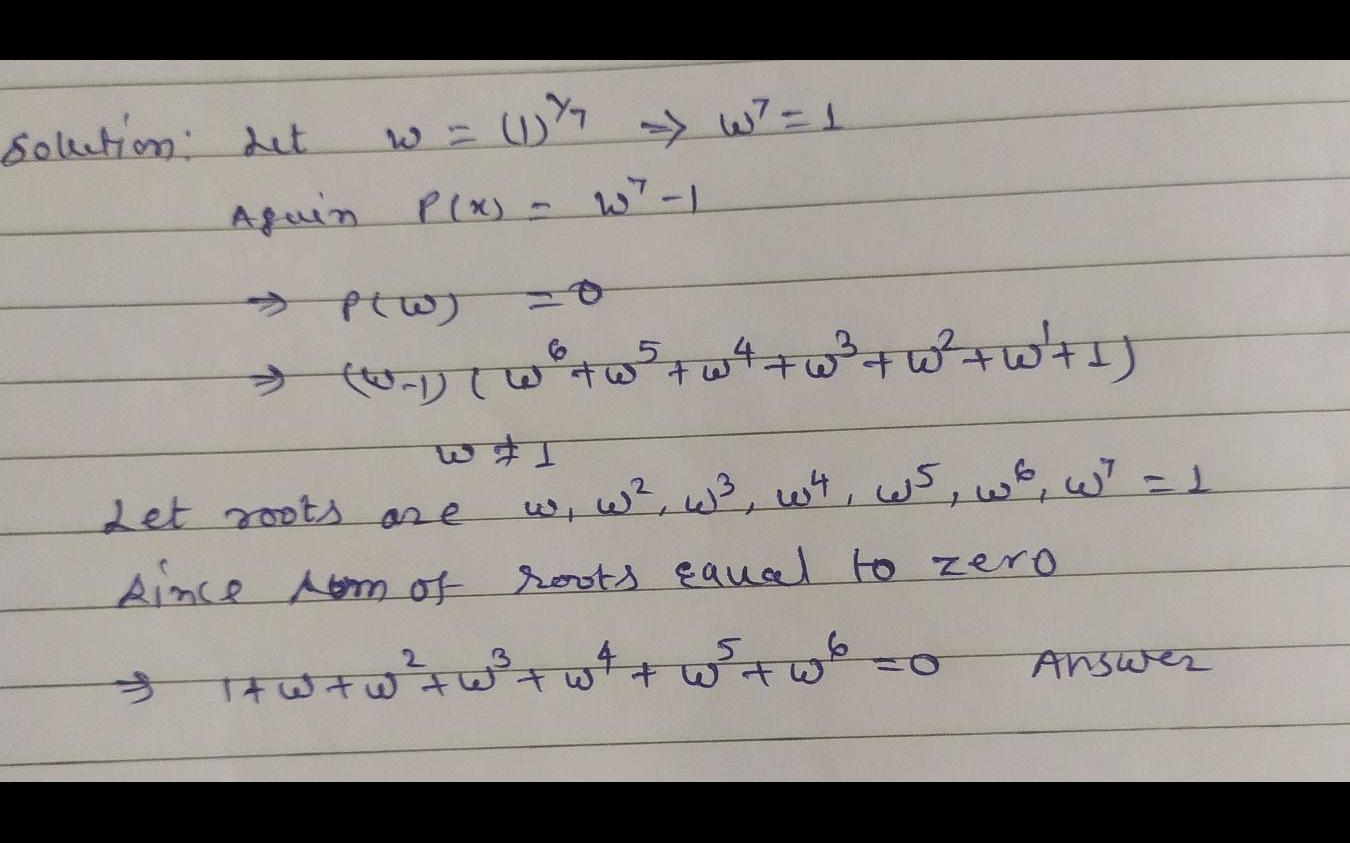 Solution: Let w = (1)^1/7 ⇒ w^7 = 1
Again P(x) = w^7 - 1
⇒ P(w) = 0
⇒ (w-1) ( w^6 + w^5 + w^4 + w^3 + w^2 + w^1 + 1)
w ≠ 1
Let roots are w, w^2, w^3, w^4, w^5, w^6, w^7 = 1
Since sum of roots equal to zero
⇒ 1 + w + w^2 + w^3 + w^4 + w^5 + w^6 = 0 Answer